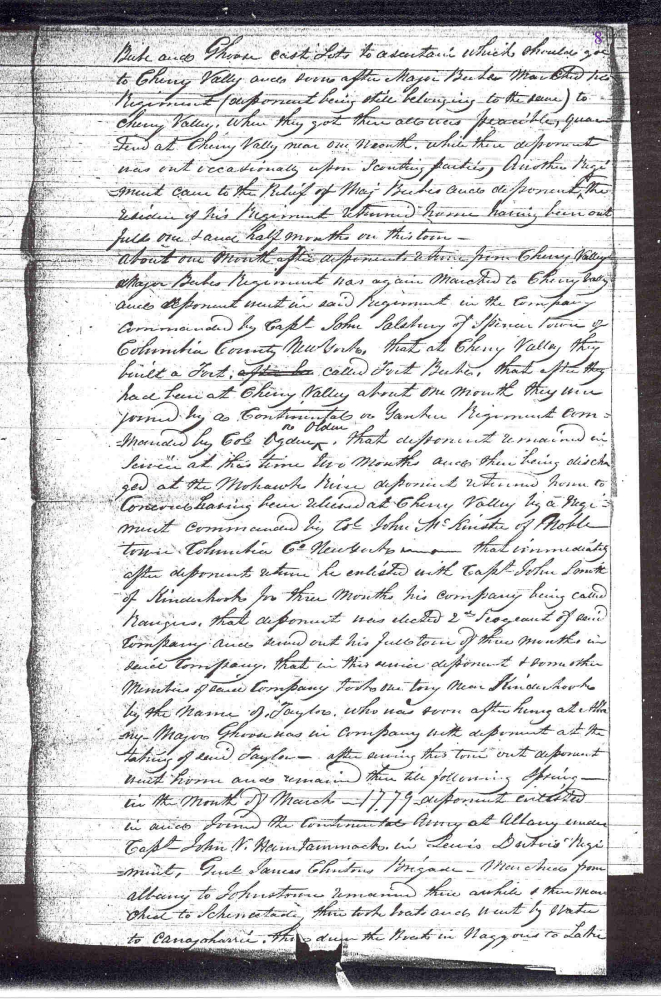 8
Bebe and Ghoose cast Lots to ascertain which should go
to Cherry Vally and soon after Major Beebes Marched his
Regiment (deponent being still belonging to the same) to
Cherry Valley, when they got there all was peacible, quar-
tered at Cherry Vally near one Month. while there deponent
was out occasionally upon Scouting parties, Another Regi
-ment came to the Relief of Maj Beebes and deponent & the
residue of his Regiment returned home having been out
full one & and half months on this tour —
about one Month after deponents return from Cherry Valley
Major Bebes Regiment was again Marched to Cherry Vally
and deponent went in said Regiment in the Company
commanded by Capt John Salsbury of Spencer Town of
Columbia County New York, that at Cherry Valley they
built a Fort, called Fort Beebe, that after they
had been at Cherry Valley about one Month they were
joined by a Continental or Yankee Regiment Com-
or Olden
-manded by Col Ogden, that deponent remained in
Service at this time two Months and then being dischar
ged at the Mohawk River deponent returned home to
Concord having been released at Cherry Valley by a Regi-
ment commanded by Col John McKinstre of Noble
town Columbia Co New York — that immediately
after deponents return he enlisted with Capt John Smith
of Kinderhook for three Months his company being called
Rangers, that deponent was elected 2nd Sergeant of said
Company and served out his full tour of three Months in
said Company, that in this service deponent & some other
Members of said Company took one tory near Kinderhook
by the Name of Taylor, who was soon after hung at Alba
ny — Major Ghoose was in Company with deponent at the
taking of said Taylor — after serving this tour out deponent
went home and remained there till following Spring —
in the Month of March — 1779 deponent enlisted
in and Joined the Continental Army at Albany under
Capt John V. in Lewis Dubois Regi
-ment, Genl James Clintons Brigade — Marched from
albany to Johnstown remained there awhile & then mar
ched to Schenectady, there took boats and went by Water
to Canajoharrie, the Boats in Waggons to Lake